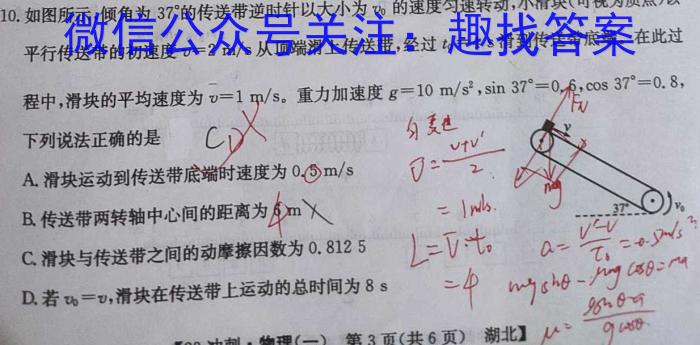 10. 如图所示,倾角为 37°的传送带逆时针以大小为 v₀ 的速度匀速转动,小滑块(可视为质点)以
微信公众号关注：趣找答案
平行传送带的初速度 v=2 m/s 从顶端滑上传送带,经过 t 滑到传送带底端。在此过
程中,滑块的平均速度为 v̄=1 m/s。重力加速度 g=10 m/s²,sin 37°=0.6,cos 37°=0.8,
下列说法正确的是
CD
A. 滑块运动到传送带底端时速度为 0.5 m/s
B. 传送带两转轴中心间的距离为 m
C. 滑块与传送带之间的动摩擦因数为 0.812 5
D. 若 v₀=v,滑块在传送带上运动的总时间为 8 s
v̄=(v+v')/2
=1m/s
L=v̄·t₀
=4
FN
v
mg
37°
v₀
mgsinθ-μmgcosθ=ma
冲刺·物理(一) 第 3 页(共 6 页) 湖北】